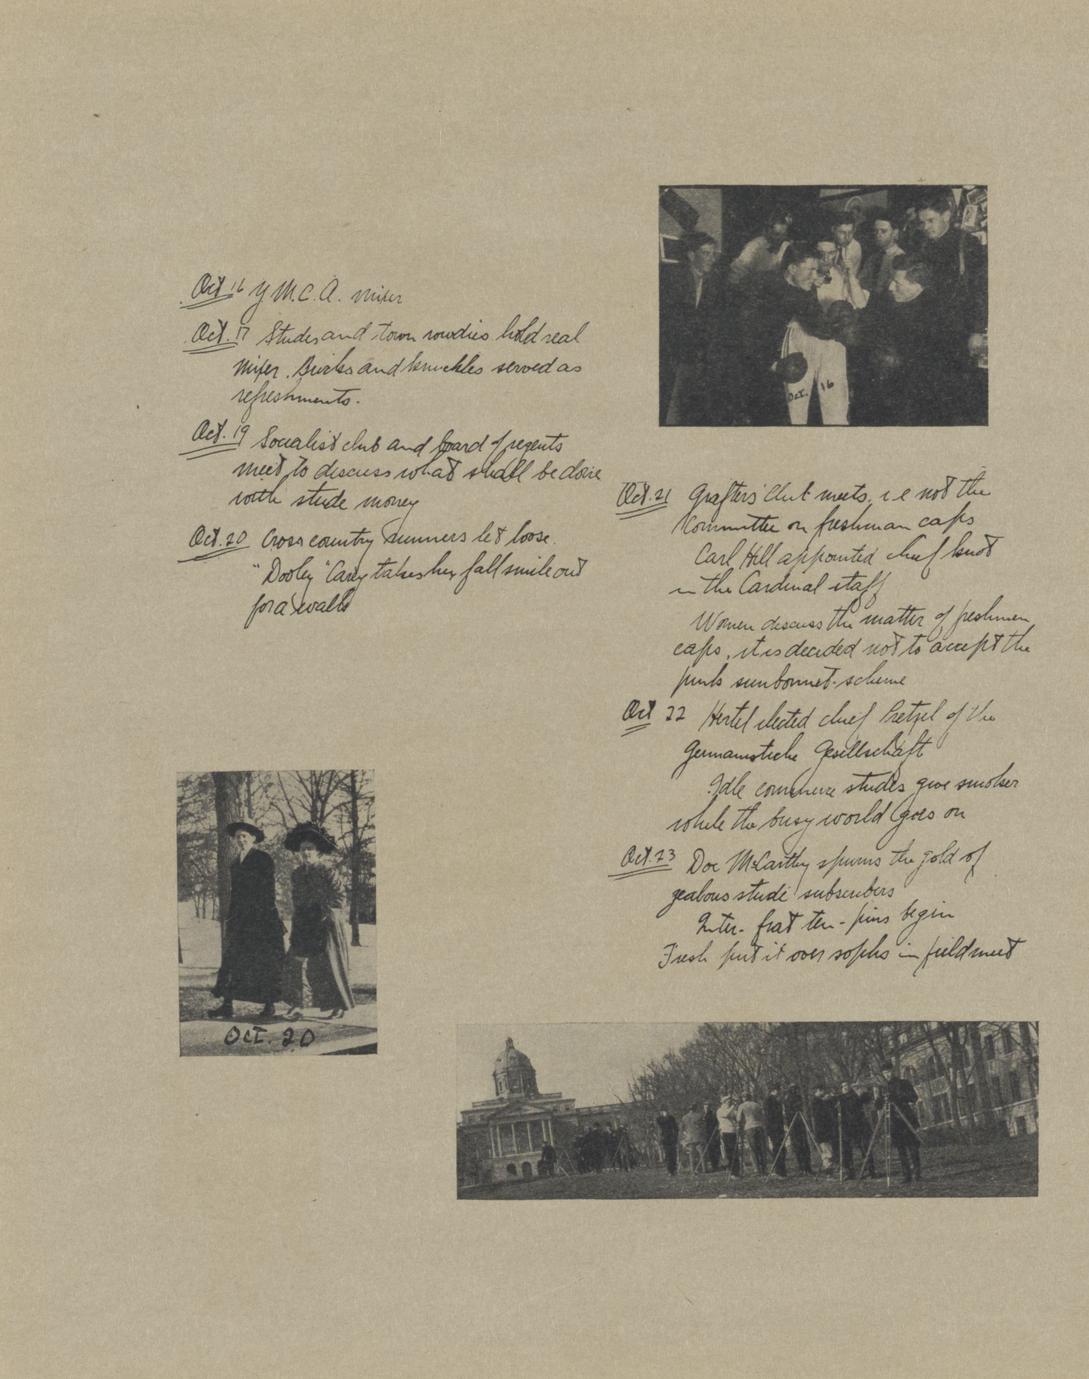 Oct 16 Y.M.C.A. mixer
Oct. 17 Studes and town rowdies hold real
mixer. Bricks and knuckles served as
refreshments.
Oct. 19 Socialist club and board of regents
meet to discuss what shall be done
with stude money
Oct. 20 Cross country runners let loose.
"Dooley" Carey takes her fall smile out
for a walk
Oct. 16
Oct. 21 Grafters' Club meets, i.e. not the
Committee on freshman caps
Carl Hill appointed chief knot
in the Cardinal staff
Women discuss the matter of freshmen
caps, it is decided not to accept the
pink sunbonnet scheme
Oct 22 Hertel elected chief Pretzel of the
Germanistiche Gesellschaft
Idle commerce studes give smoker
while the busy world goes on
Oct. 23 Doc McCarthy spurns the gold of
zealous stude subscribers
Inter-frat ten-pins begin
Fresh put it over sophs in field meet
Oct. 20